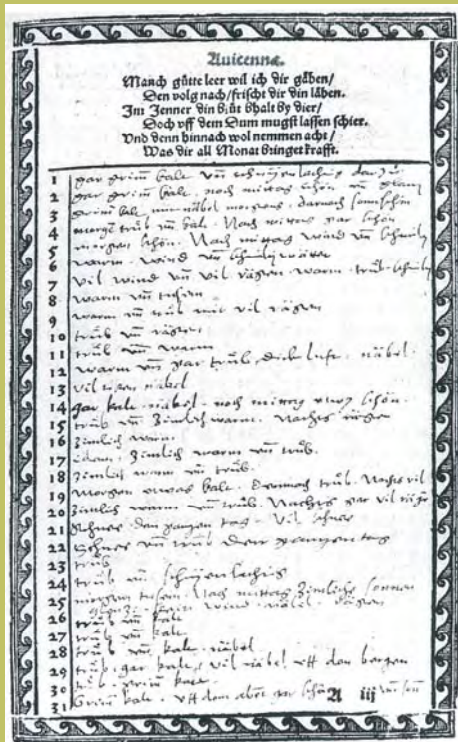 Auicenna.
Manch gůtte leer wil ich dir gåben/
Den volg nach/frischt dir din låben.
Im Jenner din Blůt bhalt by dier/
Doch vff dem Dum mugst lassen schier.
Vnd denn hinnach wol nemmen acht/
Was dir all Monat bringet krafft.
1 gar grim̄ kalt vn̄
2 gar grim̄ kalt, noch mittag schön vn̄
3 grim̄ kalt morgens, darnach
4 morgē trüb vn̄ kalt. Nach mittag gar schön
5 morgen schön. Nach mittag wind vn̄
6 warm. wind vn̄
7 vil wind vn̄ vil rägen. warm. trüb.
8 warm vn̄
9 warm vn̄ trüb mit vil rägen
10 trüb vn̄ rägen
11 trüb vn̄ warm
12 warm vn̄ gar trüb, dick luft. näbel.
13 vil näbel
14 gar kalt. näbel. noch mittag schön.
15 trüb vn̄ zimlich warm. Nachts rägen
16 zimlich warm
17 zimlich warm vn̄ trüb.
18 zimlich warm vn̄ trüb.
19 Morgen kalt. Demnach trüb. Nachts vil
20 zimlich warm vn̄ trüb. Nachts gar vil
21 Schnee den ganzen tag. vil schnee
22 Schnee vn̄ trüb den ganzen tag
23 trüb
24 trüb vn̄
25 morgen Nach mittag zimlich sonnen
wind. näbel. rägen
26 trüb vn̄ kalt
27 trüb vn̄ kalt
28 trüb vn̄ kalt. näbel
29 trüb. gar kalt, vil näbel vff den bergen
30 trüb. grim̄ kalt
31 Grim̄ kalt. vff dem abent gar schön
A iij